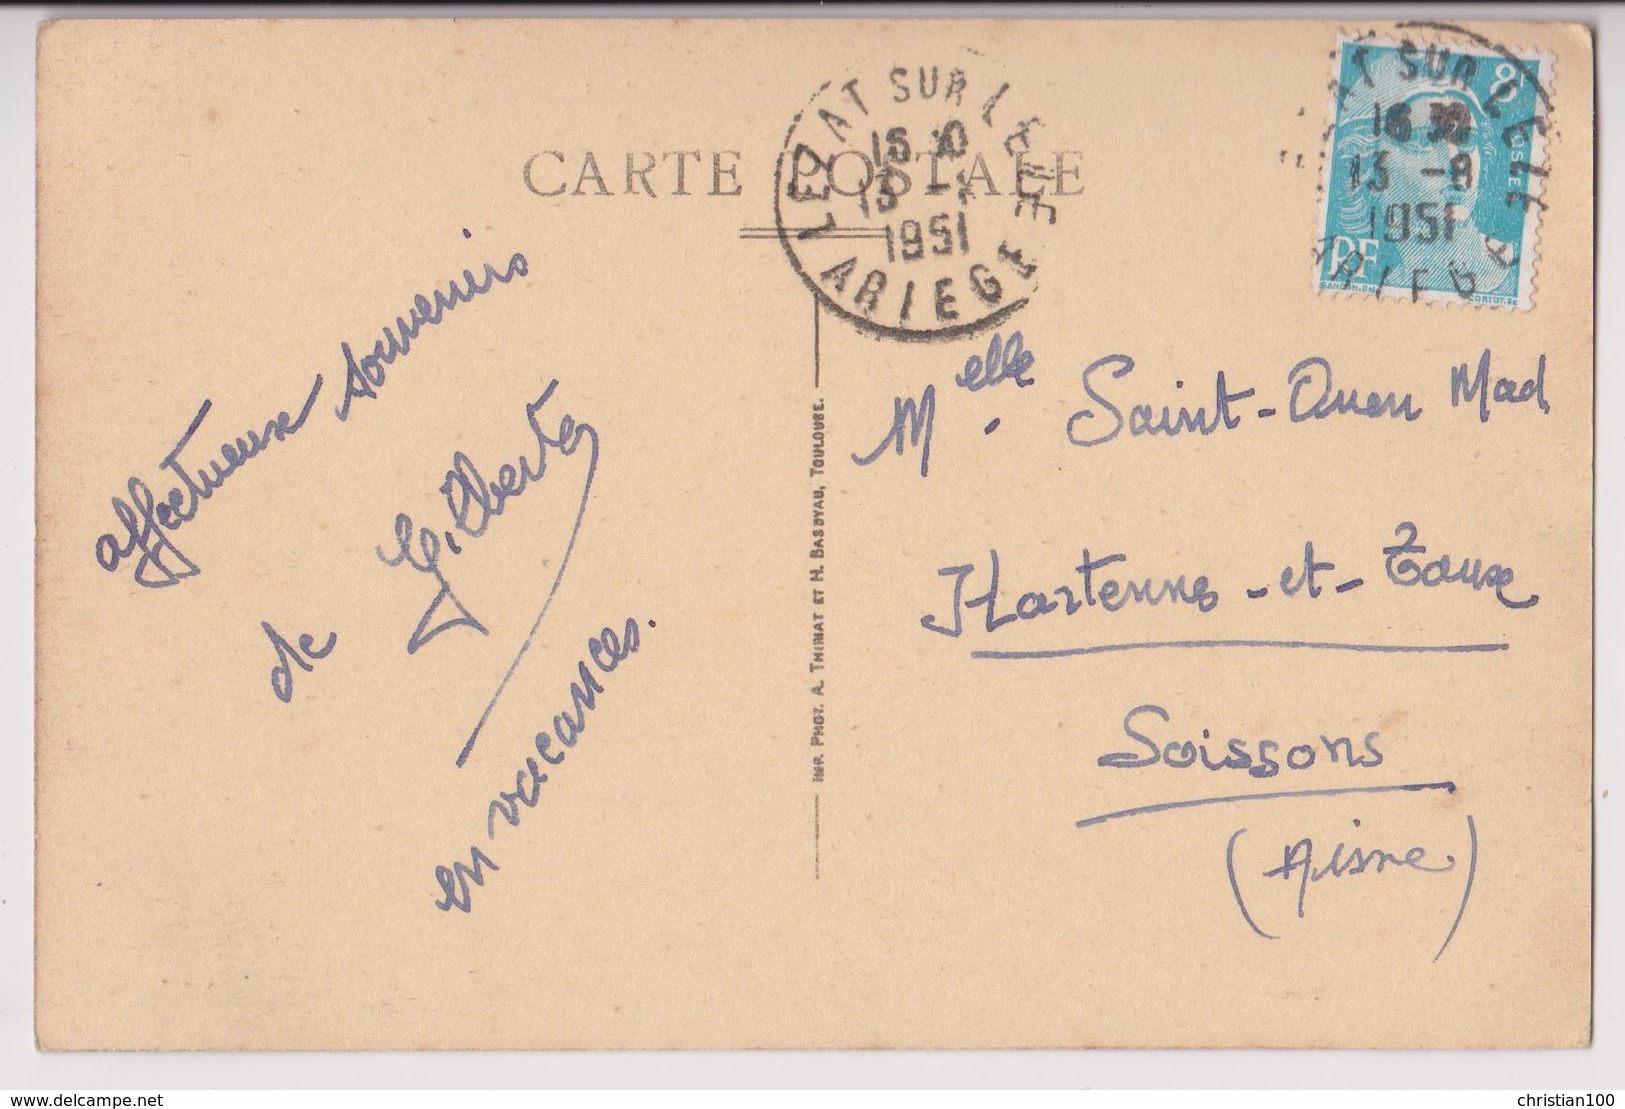 CARTE POSTALE
LEZAT SUR LEZE
13 -
1951
ARIEGE
8F
POSTES
RF
GANDON.DEL
CORTOT.SC
AT SUR LEZE
16 30
13 -8
1951
ARIEGE
affectueux souvenirs
de Gilberte
en vacances.
IMP. PHOT. A. THIRIAT ET H. BASUYAU, TOULOUSE.
Melle. Saint-Ouen Mad
Hartennes-et-Taux
Soissons
(Aisne)
http://www.delcampe.net
christian100